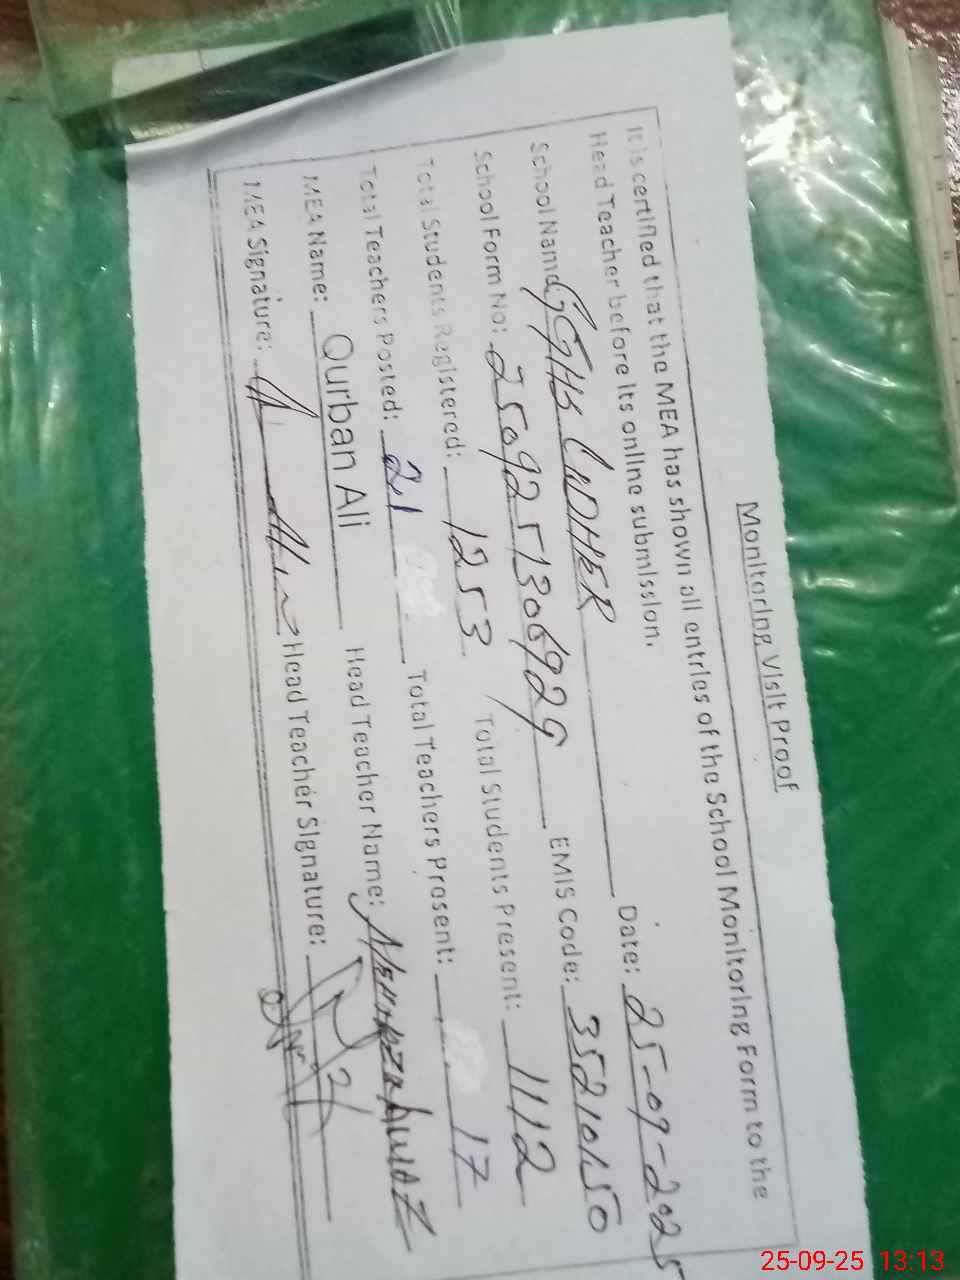 Monitoring Visit Proof
It is certified that the MEA has shown all entries of the School Monitoring Form to the
Head Teacher before its online submission.
School Name: GGHS LADHER Date: 25-09-2025
School Form No: 250925130692 9 EMIS Code: 35210150
Total Students Registered: 1253 Total Students Present: 1112
Total Teachers Posted: 21 Total Teachers Present: 17
MEA Name: Qurban Ali Head Teacher Name:
MEA Signature: Head Teacher Signature:
25-09-25 13:13